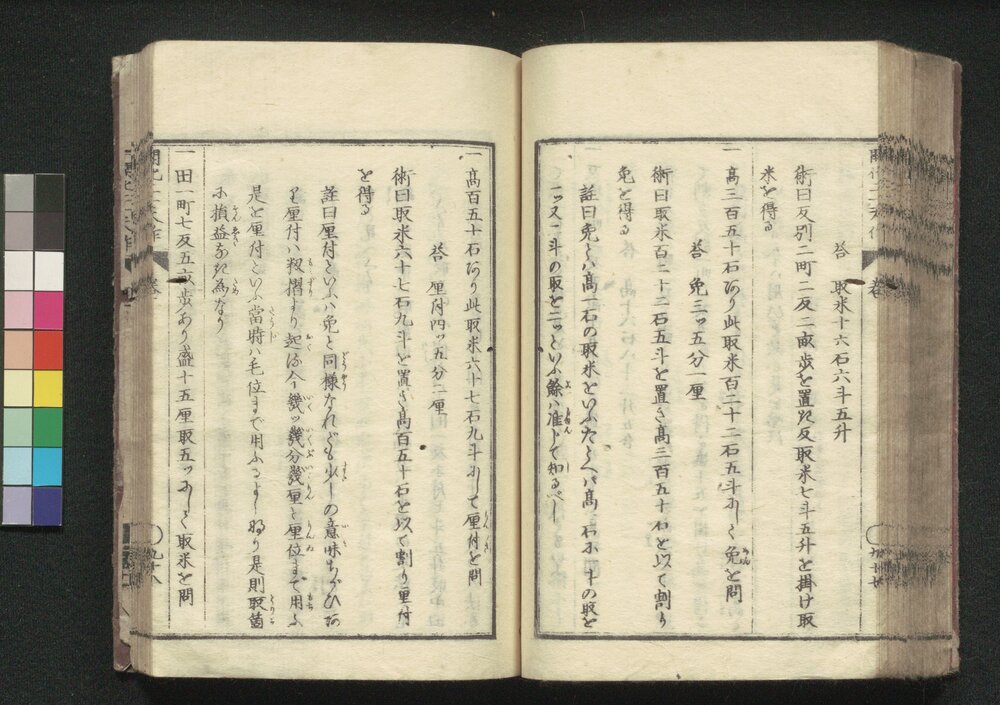 答 取米十六石六斗五升
術曰反別二町二反二畝歩を置き反取米七斗五升を掛け取
米を得る
一高三百五十石あり此取米百二十二石五斗にして免を問
答 免三ッ五分
術曰取米百二十二石五斗を置き高三百五十石を以て割り
免を得る
註曰免とハ高一石の取米をいふたとへバ高一石に一斗の取を
一ッ又二斗の取を二ッといふ餘ハ准じて知るべし
一高百五十石あり此取米六十七石九斗にして厘付を問
答 厘付四ッ五分二厘
術曰取米六十七石九斗を置き高百五十石を以て割り厘付
を得る
註曰厘付といふハ免と同様なれども少しの意味ちがひあ
り厘付ハ籾摺より起る今幾ッ幾分幾厘と厘位まで用ふ
是を厘付といふ當時ハ毛位まで用ふるよし是則取箇
に損益なき為なり
一田一町七反五畝歩あり盛十五厘取五ッにして取米を問